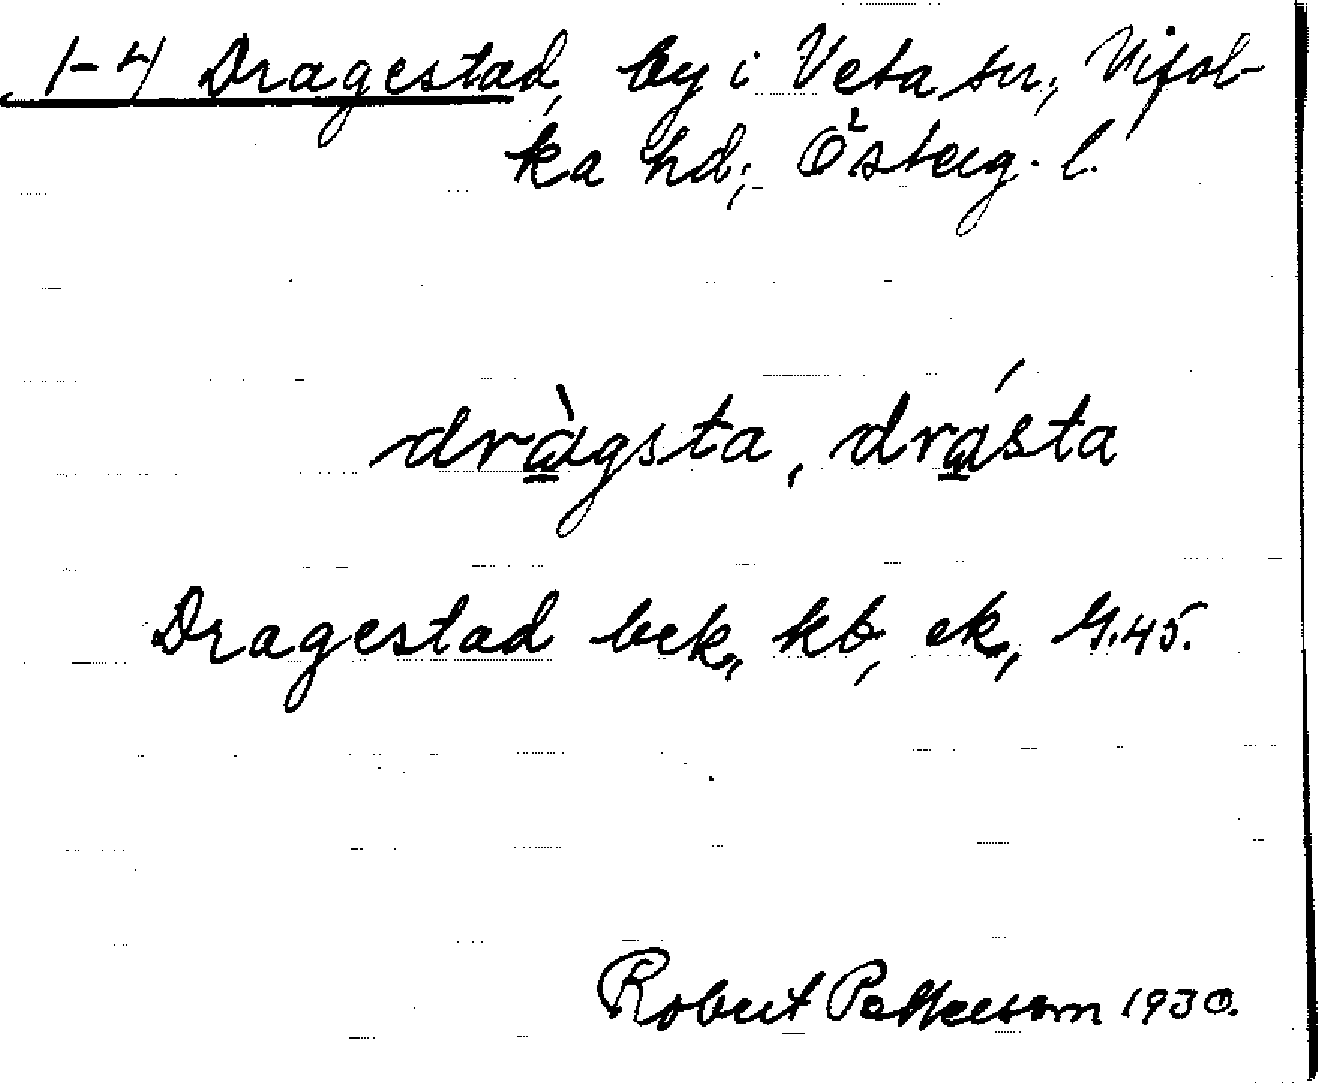 1-4 Dragestad, by i Veta sn, Vifol-
ka hd, Österg. l.
dràgsta, drásta
Dragestad bek, kb, ek, G.45.
Robert Pettersson 1930.